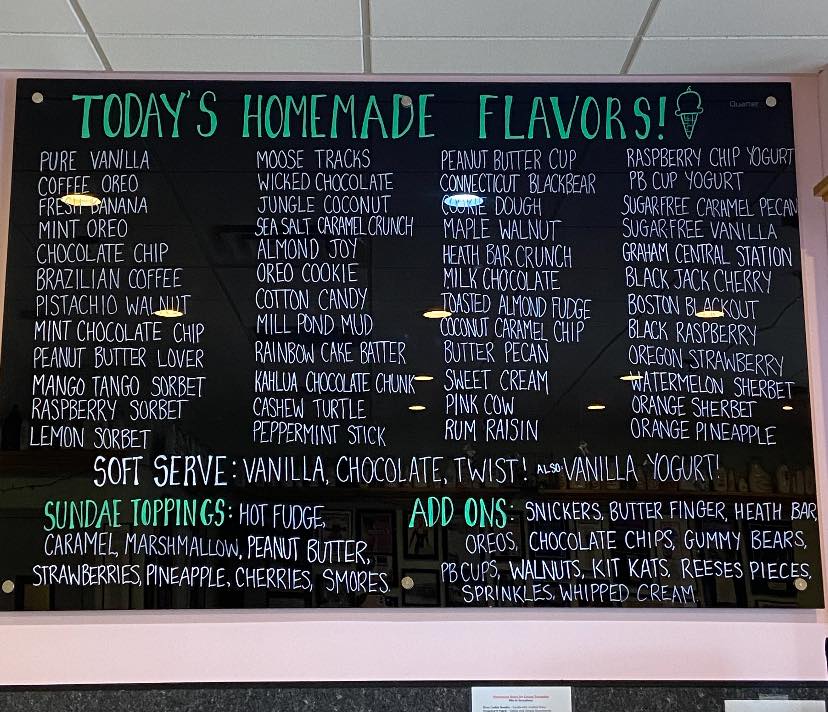 TODAY'S HOMEMADE FLAVORS!
Quartet
PURE VANILLA
COFFEE OREO
FRESH BANANA
MINT OREO
CHOCOLATE CHIP
BRAZILIAN COFFEE
PISTACHIO WALNUT
MINT CHOCOLATE CHIP
PEANUT BUTTER LOVER
MANGO TANGO SORBET
RASPBERRY SORBET
LEMON SORBET
MOOSE TRACKS
WICKED CHOCOLATE
JUNGLE COCONUT
SEA SALT CARAMEL CRUNCH
ALMOND JOY
OREO COOKIE
COTTON CANDY
MILL POND MUD
RAINBOW CAKE BATTER
KAHLUA CHOCOLATE CHUNK
CASHEW TURTLE
PEPPERMINT STICK
PEANUT BUTTER CUP
CONNECTICUT BLACKBEAR
COOKIE DOUGH
MAPLE WALNUT
HEATH BAR CRUNCH
MILK CHOCOLATE
TOASTED ALMOND FUDGE
COCONUT CARAMEL CHIP
BUTTER PECAN
SWEET CREAM
PINK COW
RUM RAISIN
RASPBERRY CHIP YOGURT
PB CUP YOGURT
SUGARFREE CARAMEL PECAN
SUGARFREE VANILLA
GRAHAM CENTRAL STATION
BLACK JACK CHERRY
BOSTON BLACKOUT
BLACK RASPBERRY
OREGON STRAWBERRY
WATERMELON SHERBET
ORANGE SHERBET
ORANGE PINEAPPLE
SOFT SERVE: VANILLA, CHOCOLATE, TWIST! ALSO: VANILLA YOGURT!
SUNDAE TOPPINGS: HOT FUDGE,
CARAMEL, MARSHMALLOW, PEANUT BUTTER,
STRAWBERRIES, PINEAPPLE, CHERRIES, SMORES.
ADD ONS: SNICKERS, BUTTER FINGER, HEATH BAR,
OREOS, CHOCOLATE CHIPS, GUMMY BEARS,
PB CUPS, WALNUTS, KIT KATS, REESES PIECES,
SPRINKLES, WHIPPED CREAM.